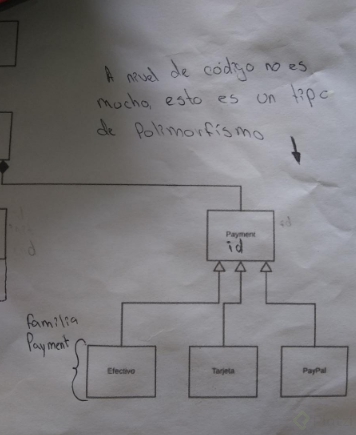 A nivel de código no es
mucho, esto es un tipo
de Polimorfismo
Payment
id
Familia
Payment
Efectivo
Tarjeta
PayPal